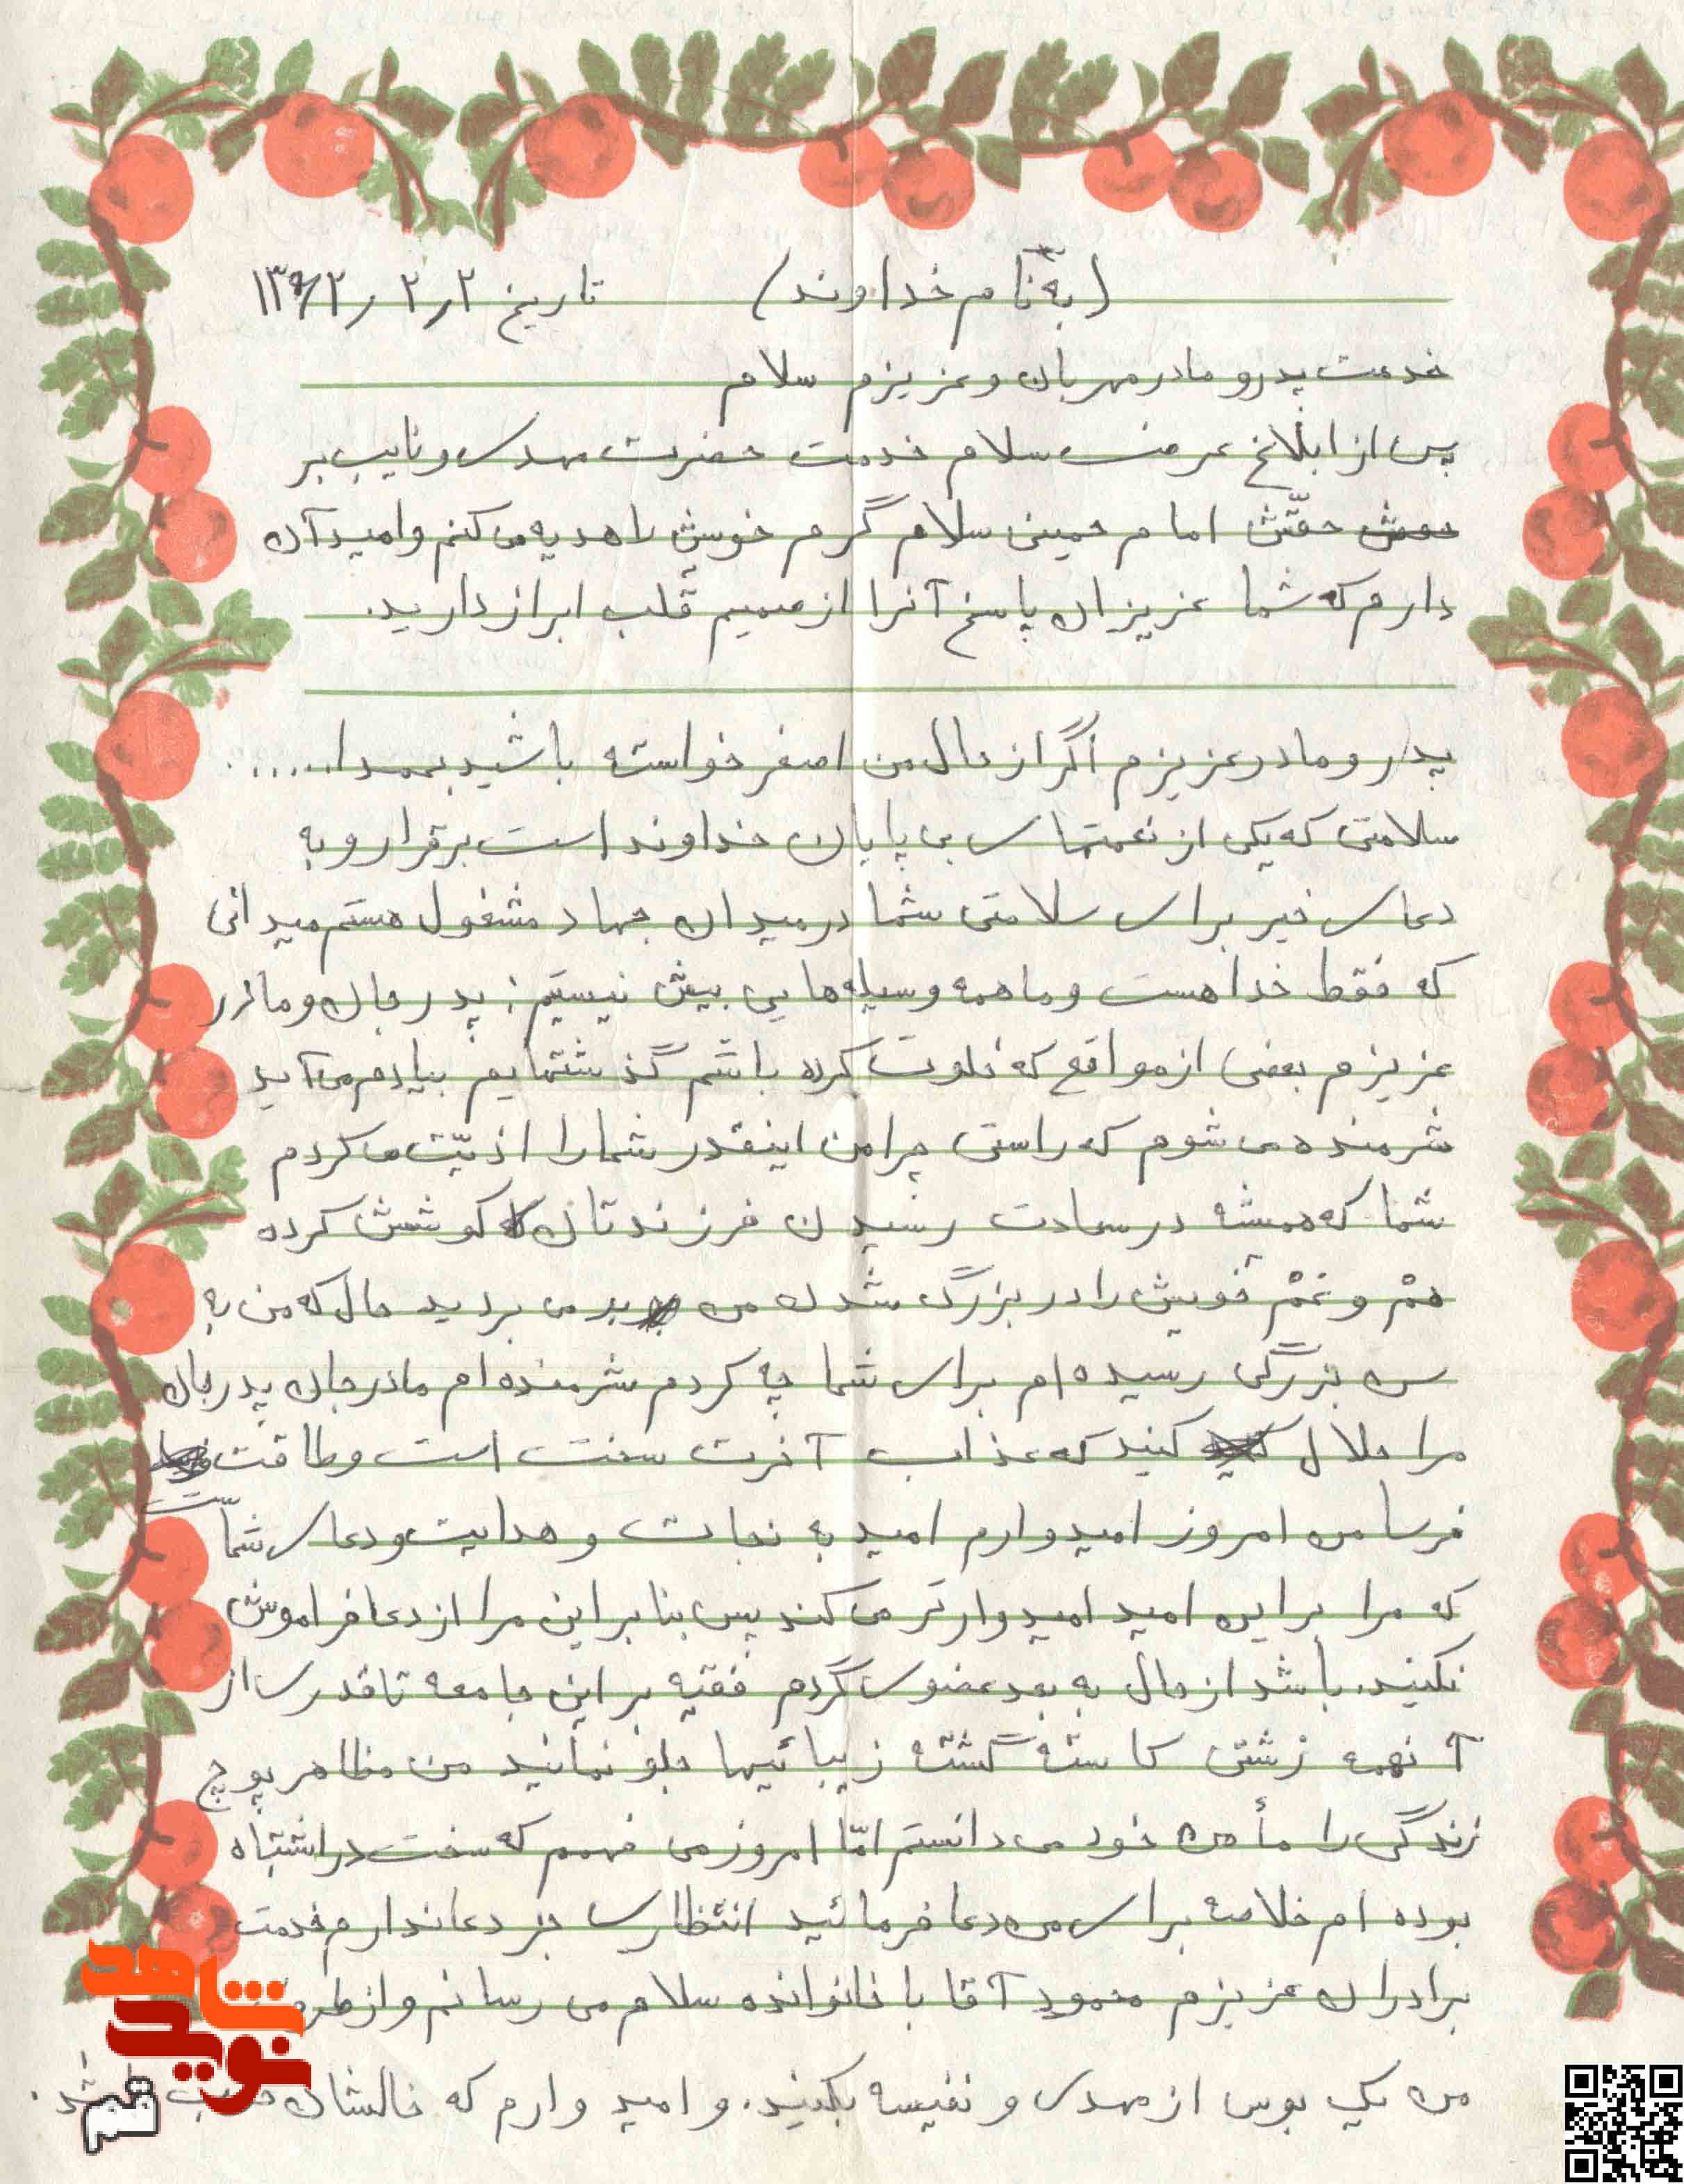 (به نام خداوند) تاریخ ۲ر۲ر۱۳۶۲
خدمت پدر و مادر مهربان و عزیزم سلام
پس از ابلاغ عرض سلام خدمت حضرت مهدی و نایب بر
حقّش امام خمینی سلام گرم خویش را هدیه می کنم و امید آن
دارم که شما عزیزان پاسخ آنرا از صمیم قلب ابراز دارید.
پدر و مادر عزیزم اگر از حال من اصغر خواسته باشید بحمدا......
سلامتی که یکی از نعمتهای بی پایان خداوند است برقرار و به
دعای خیر برای سلامتی شما در میدان جهاد مشغول هستم میدانی
که فقط خدا هست و ما همه وسیله هایی بیش نیستیم: پدر جان و مادر
عزیزم بعضی از مواقع که خلوت کرده باشم گذشتهایم بیادم می آید
شرمنده می شوم که راستی چرا من اینقدر شما را اذیّت می کردم
شما که همیشه در سعادت رسیدن فرزندتان کوشش کرده
همْ و غمْ خویش را در بزرگ شدن من بسر می بردید حال که من به
سن بزرگی رسیده ام برای شما چه کردم شرمنده ام مادر جان پدر جان
مرا حلال کنید که عذاب آخرت سخت است و طاقت
فرسا من امروز امیدوارم امید به نجات و هدایت و دعای شماست
که مرا بر این امید امیدوارتر می کند پس بنابراین مرا از دعا فراموش
نکنید. باشد از حال به بعد عضوی گردم فقیه بر این جامعه تا قدری از
آنهمه زشتی کاسته گشته زیبائیها جلو نمانید من مظاهر پوچ
زندگی را مأمن خود می دانستم امّا امروز می فهمم که سخت در اشتباه
بوده ام خلاصه برای من دعا فرمائید انتظاری جز دعا ندارم خدمت
برادران عزیزم محمود آقا با خانواده سلام می رسانم و از طرف
من یک بوس از مهدی و نفیسه بکنید. و امید وارم که خالشان خوب باشد.
نوید شاهد
قم